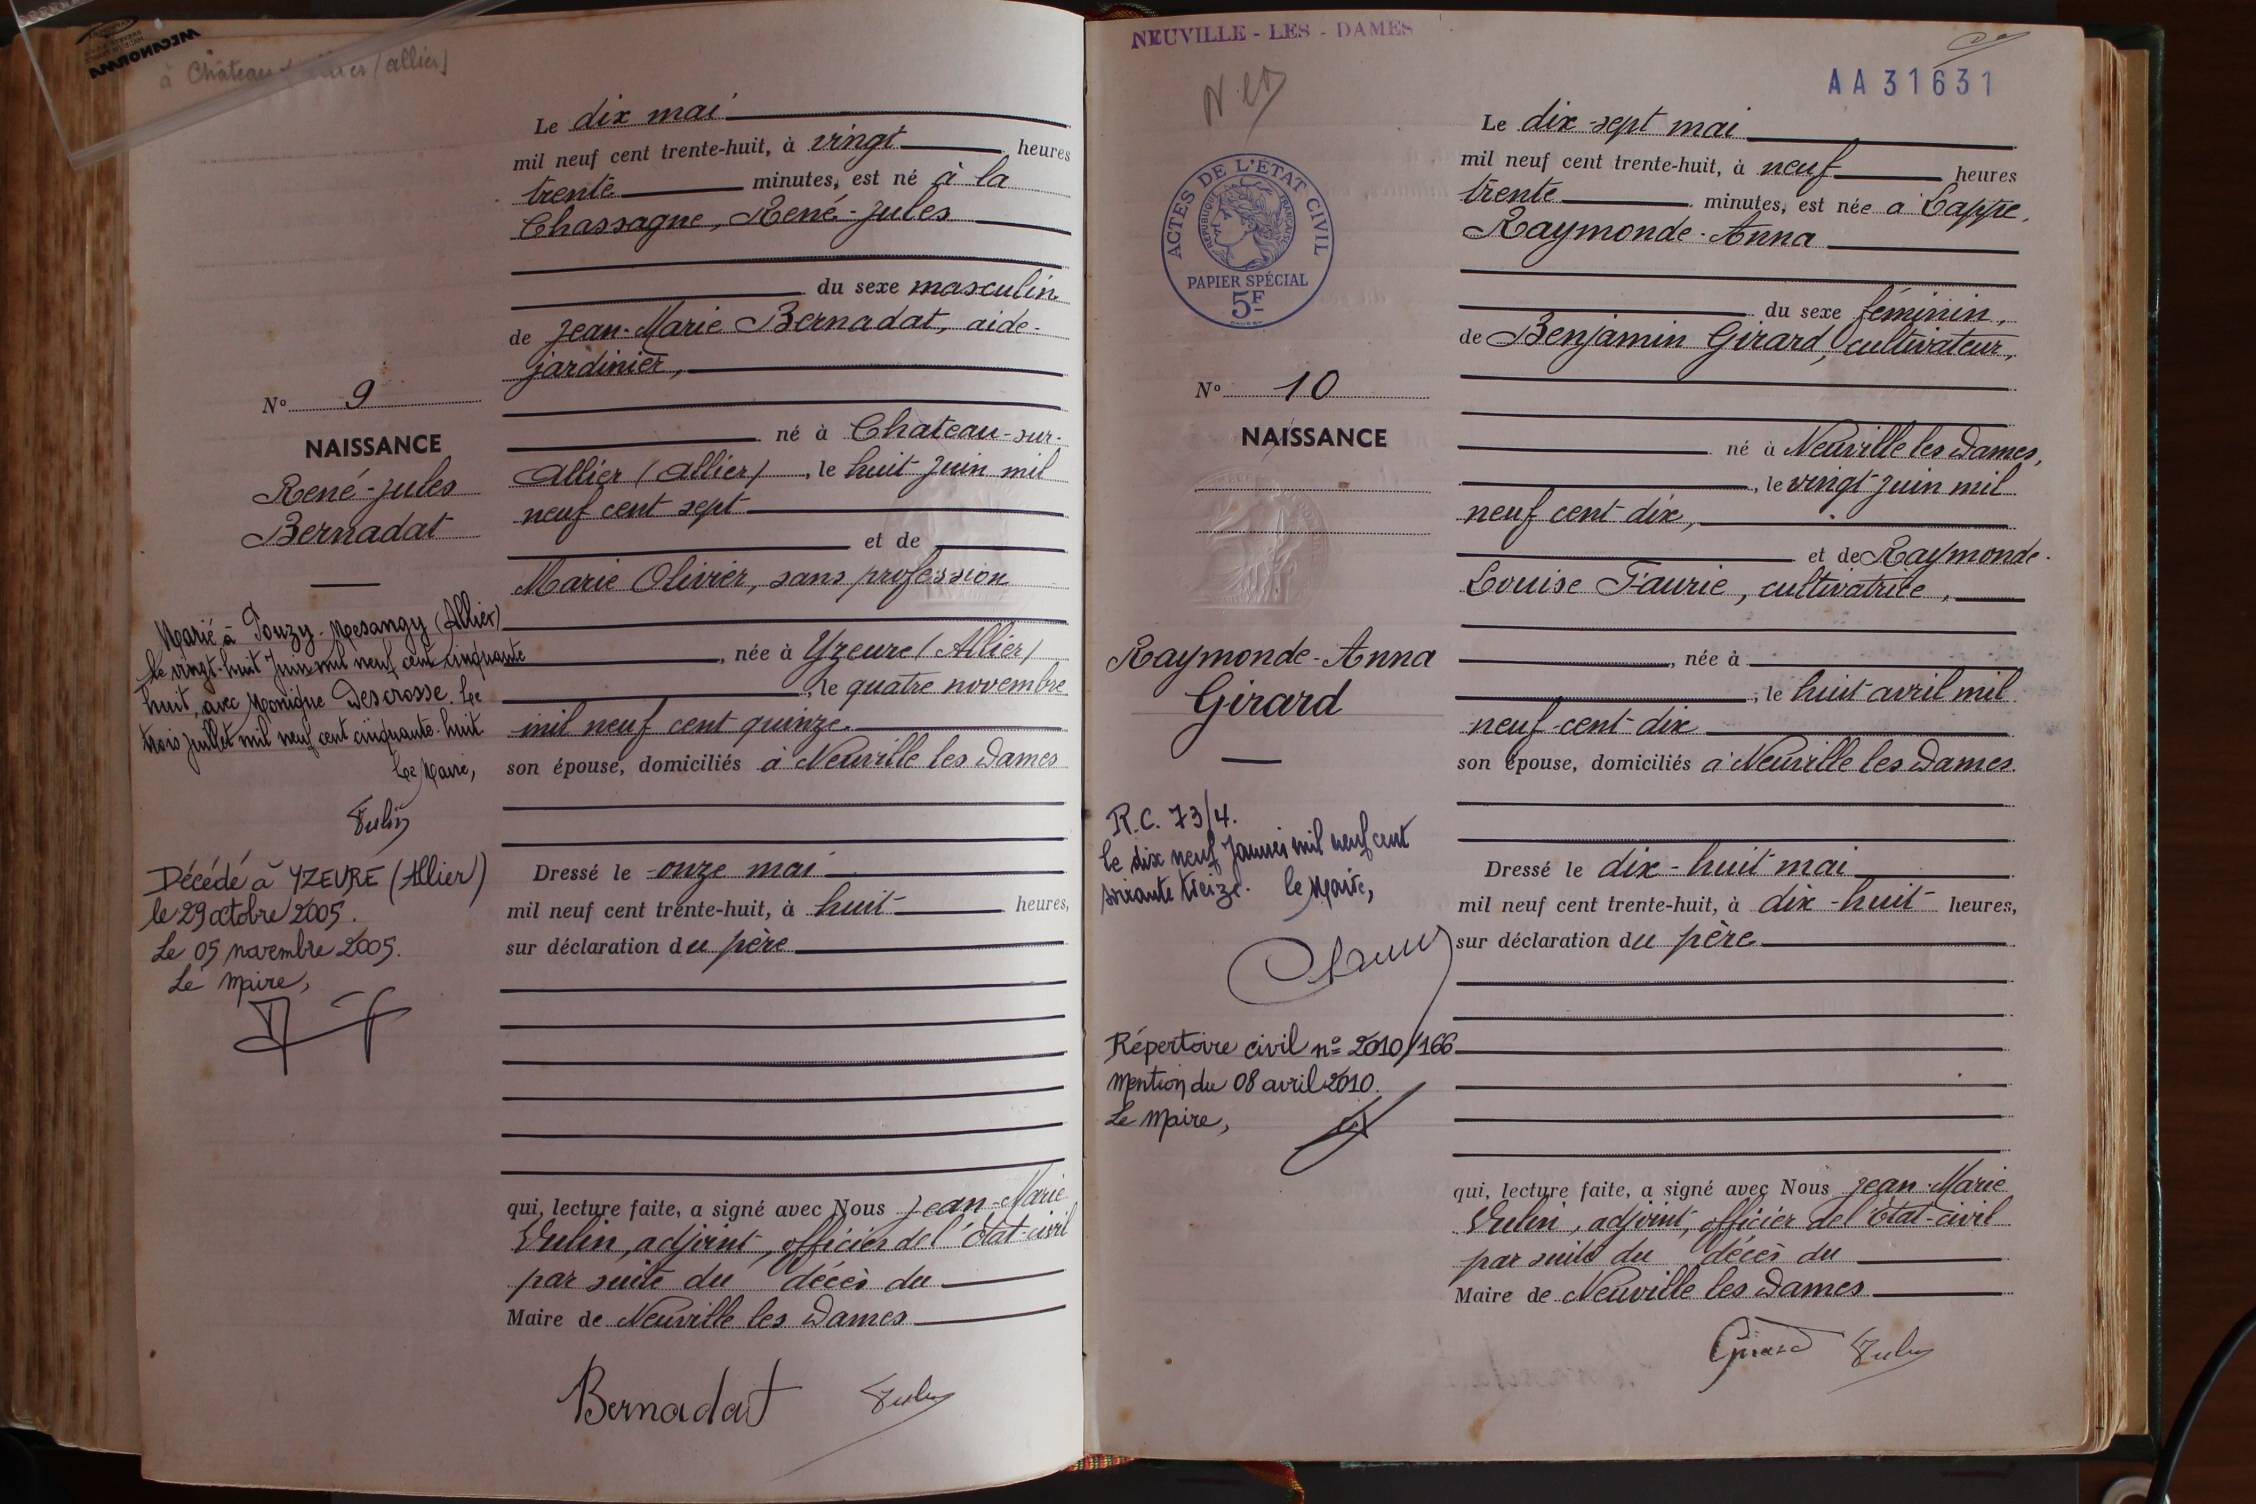 MECANORMA
à Château allier (allier)
Le dix mai
mil neuf cent trente-huit, à vingt heures
trente minutes, est né à la
Chassagne, René-Jules
du sexe masculin
de Jean-Marie Bernadat, aide-
jardinier,
né à Chateau-sur-
Allier (Allier), le huit juin mil
neuf cent sept
et de
Marie Olivier, sans profession
, née à Yzeure (Allier)
, le quatre novembre
mil neuf cent quinze.
son épouse, domiciliés à Neuville les Dames
Dressé le onze mai
mil neuf cent trente-huit, à huit heures,
sur déclaration du père
qui, lecture faite, a signé avec Nous Jean-Marie
Vulin, adjoint, officier de l'État-civil
par suite du décès du
Maire de Neuville les Dames
Bernadat Vulin
No 9
NAISSANCE
René-Jules
Bernadat
Marié à Pouzy-Mesangy (Allier)
le vingt-huit Juin mil neuf cent cinquante
huit, avec Monique Descrosse. Le
trois juillet mil neuf cent cinquante-huit
Le Maire,
Vulin
Décédé à YZEURE (Allier)
le 29 octobre 2005.
Le 05 novembre 2005.
Le Maire,
NEUVILLE - LES - DAMES
AA31631
ACTES DE L'ÉTAT CIVIL
RÉPUBLIQUE FRANÇAISE
PAPIER SPÉCIAL
5F
Le dix-sept mai
mil neuf cent trente-huit, à neuf heures
trente minutes, est née à Lappe,
Raymonde-Anna
du sexe féminin,
de Benjamin Girard, cultivateur,
né à Neuville les Dames,
, le vingt juin mil
neuf cent dix,
et de Raymonde-
Louise Faurie, cultivatrice,
, née à
, le huit avril mil
neuf-cent-dix
son épouse, domiciliés à Neuville les Dames.
Dressé le dix-huit mai
mil neuf cent trente-huit, à dix-huit heures,
sur déclaration du père
qui, lecture faite, a signé avec Nous Jean-Marie
Vulin, adjoint, officier de l'État-civil
par suite du décès du
Maire de Neuville les Dames
Girard Vulin
No 10
NAISSANCE
Raymonde-Anna
Girard
R.C. 73/4.
le dix neuf Janvier mil neuf cent
soixante treize. le Maire,
Répertoire civil no 2010/166
Mention du 08 avril 2010.
Le Maire,